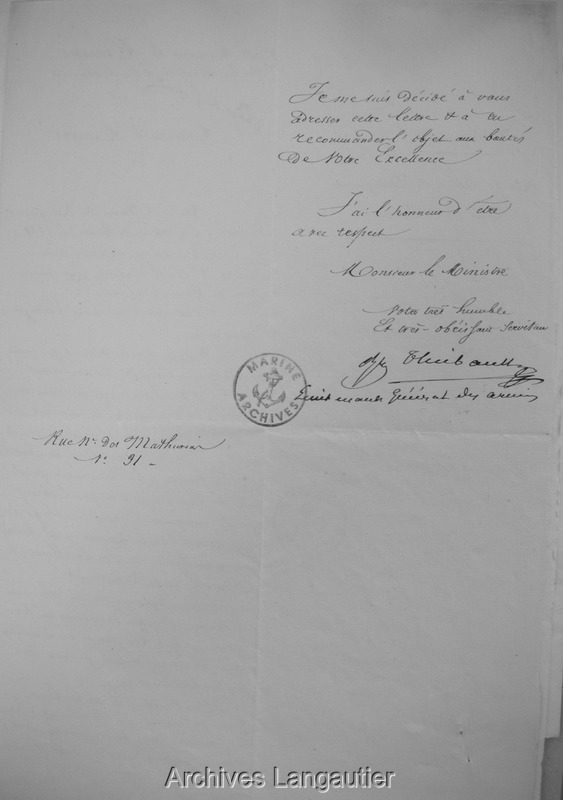 Je me suis Décidé à vous
adresser cette lettre & à en
recommander l'objet aux bontés
De Votre Excellence
J'ai l'honneur d'être
avec respect
Monsieur le Ministre
Votre très humble
Et très-obéissant Serviteur
Thiébault
Lieutenant Général des armées
MARINE
ARCHIVES
Rue Nve Des Mathurins
No 91 -
Archives Langautier